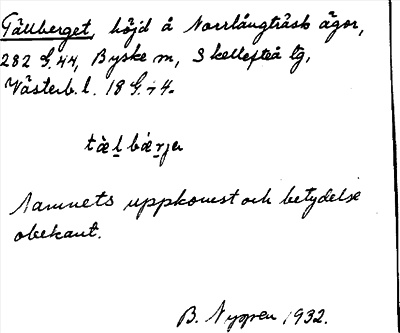 Tällberget, höjd å Norrlångträsk ägor,
282 G.44, Byske sn, Skellefteå tg,
Västerb. l. 18 G. i 4.
tæ̀l bǽrjer
Namnets uppkomst och betydelse
obekant.
B. Nygren 1932.